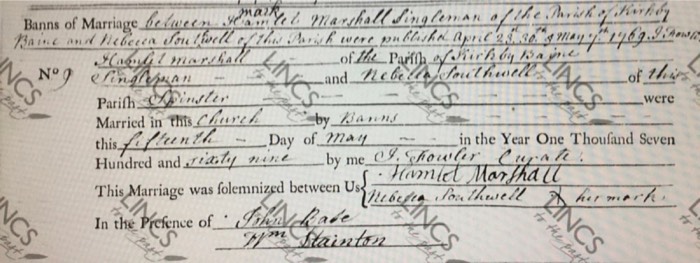 mark
Banns of Marriage between Hamlet Marshall Singleman of the Parish of Kirkby
Baine and Rebecca Southwell of this Parish were published April 23d 30th & May 7th 1769 J. Fowler
Nº 9 Hamlet Marshall of the Pariſh of Kirkby Bayne
Singleman and Rebecca Southwell of this
Pariſh Spinster were
Married in this Church by Banns
this fifteenth Day of May in the Year One Thouſand Seven
Hundred and sixty nine by me J. Fowler Curate.
This Marriage was ſolemnized between Us Hamlet Marshall
Rebecca Southwell X her mark
In the Preſence of John
Wm Stainton
LINCS to the past